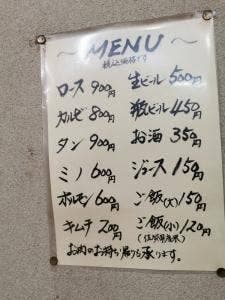 ～MENU～
税込価格です
ロース 900円
カルビ 800円
タン 900円
ミノ 600円
ホルモン 600円
キムチ 200円
生ビール 500円
瓶ビール 450円
お酒 350円
ジュース 150円
ご飯(大) 150円
ご飯(小) 120円
(佐賀県産米)
お肉のお持ち帰りも承ります。